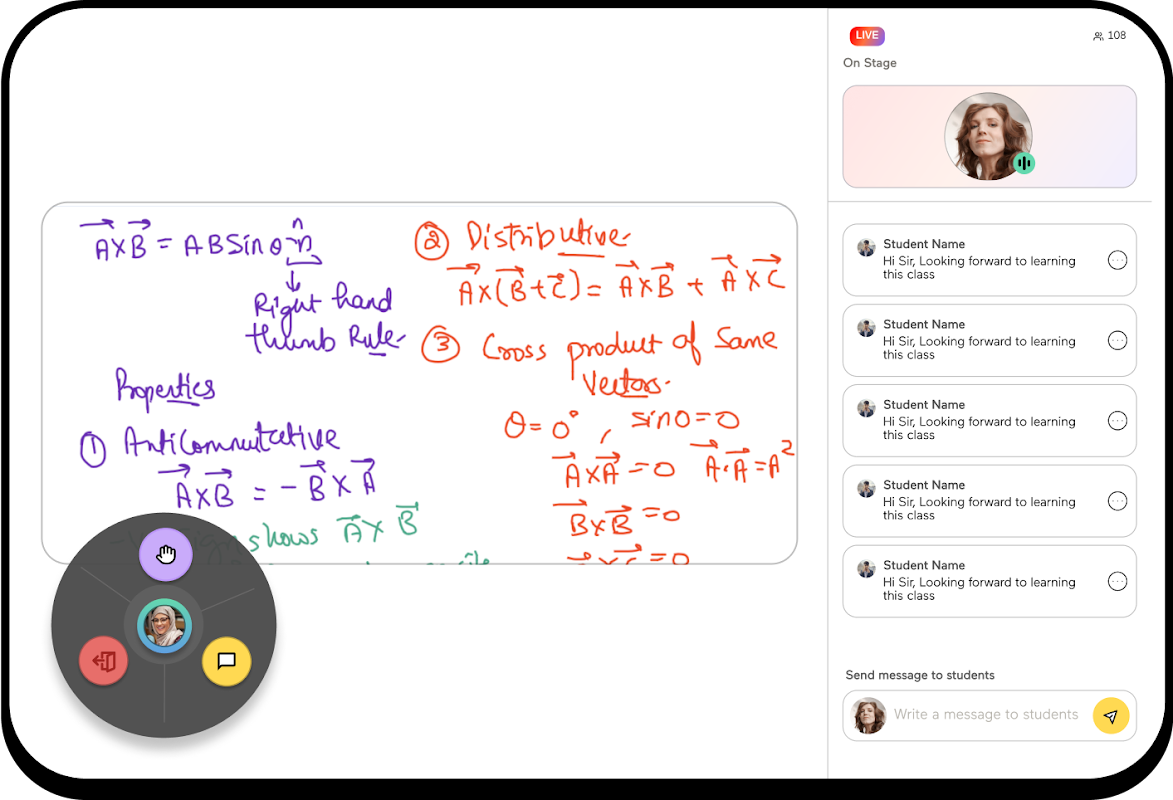 A⃗ × B⃗ = A B Sin θ n̂
Right hand
thumb Rule
Properties
① Anticommutative
A⃗ × B⃗ = - B⃗ × A⃗
shows A⃗ × B⃗
② Distributive
A⃗ × (B⃗ + C⃗) = A⃗ × B⃗ + A⃗ × C⃗
③ Cross product of Same
Vectors.
θ = 0° , sin 0 = 0
A⃗ × A⃗ = 0 A⃗ · A⃗ = A²
B⃗ × B⃗ = 0
LIVE
108
On Stage
Student Name
Hi Sir, Looking forward to learning
this class
Student Name
Hi Sir, Looking forward to learning
this class
Student Name
Hi Sir, Looking forward to learning
this class
Student Name
Hi Sir, Looking forward to learning
this class
Student Name
Hi Sir, Looking forward to learning
this class
Send message to students
Write a message to students